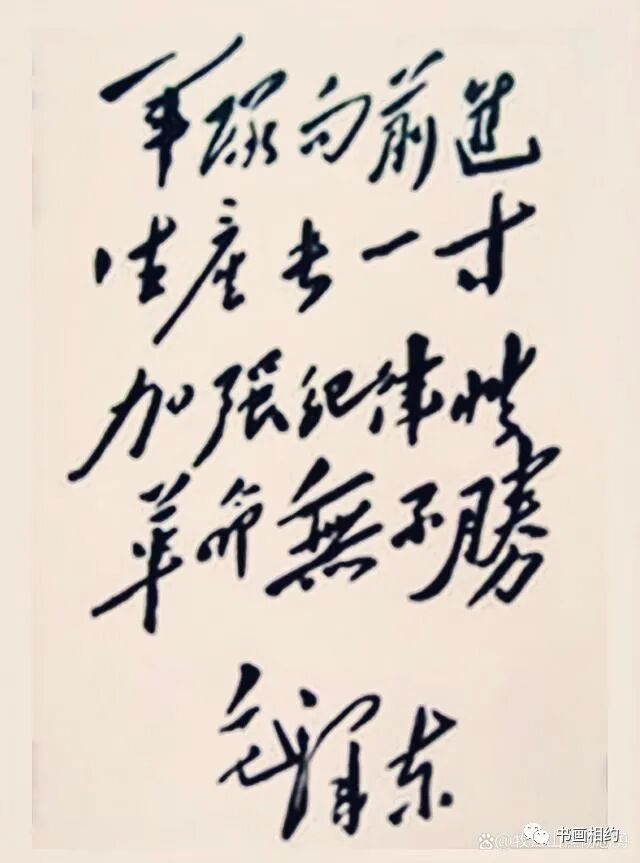 军队向前进
生产长一寸
加强纪律性
革命無不勝
毛泽东
书画相约